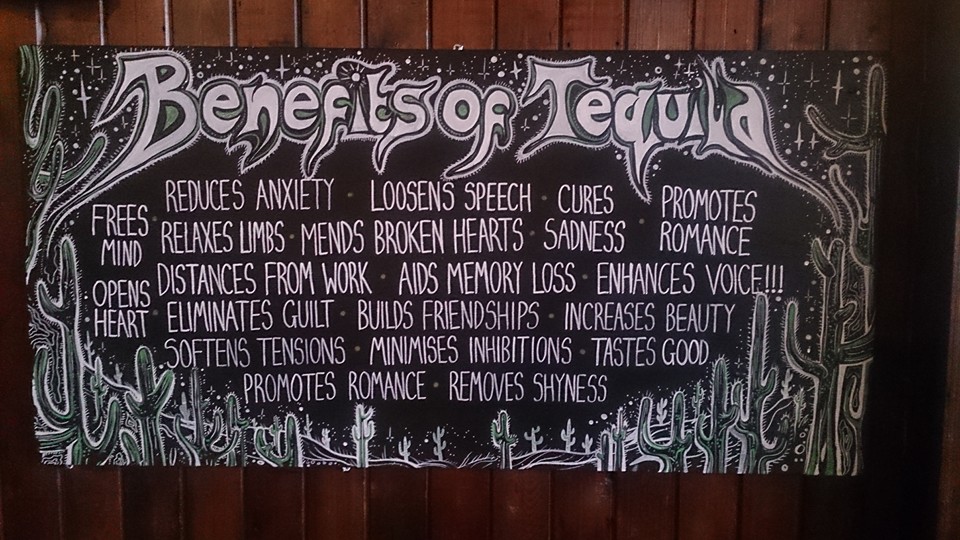 Benefits of Tequila
REDUCES ANXIETY · LOOSENS SPEECH · CURES SADNESS · PROMOTES ROMANCE
FREES MIND · RELAXES LIMBS · MENDS BROKEN HEARTS
OPENS HEART · DISTANCES FROM WORK · AIDS MEMORY LOSS · ENHANCES VOICE!!!
ELIMINATES GUILT · BUILDS FRIENDSHIPS · INCREASES BEAUTY
SOFTENS TENSIONS · MINIMISES INHIBITIONS · TASTES GOOD
PROMOTES ROMANCE · REMOVES SHYNESS